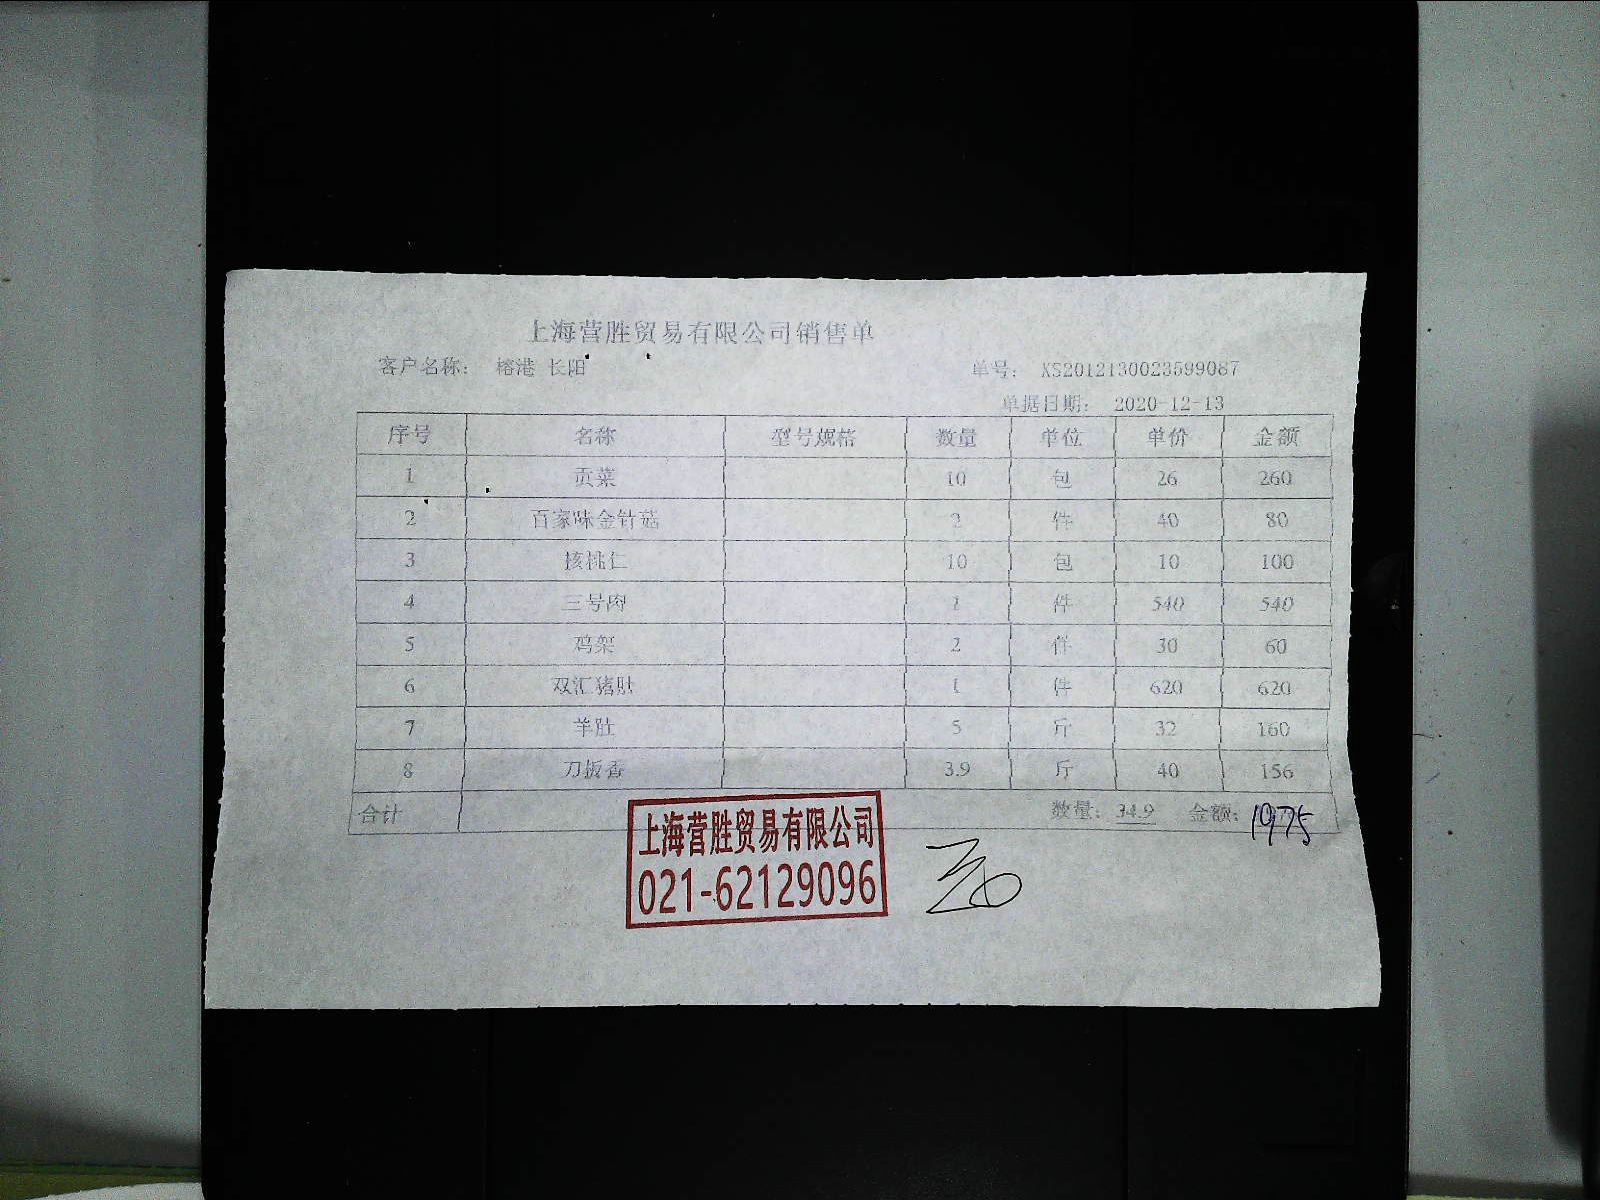 上海营胜贸易有限公司销售单
客户名称: 榕港 长阳 单号: XS2012130023599087
单据日期: 2020-12-13
序号 名称 型号规格 数量 单位 单价 金额
1 贡菜 10 包 26 260
2 百家味金针菇 2 件 40 80
3 核桃仁 10 包 10 100
4 三号肉 1 件 540 540
5 鸡架 2 件 30 60
6 双汇猪肚 1 件 620 620
7 羊肚 5 斤 32 160
8 刀板香 3.9 斤 40 156
合计 数量: 34.9 金额: 1975
上海营胜贸易有限公司
021-62129096